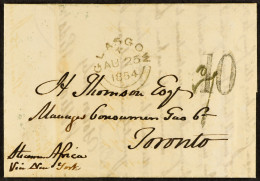 GLASGOW
AU 25
1854
10
H Thomson Esqr
Manager Consumers Gas Co
Toronto
Steamer Africa
Via New York